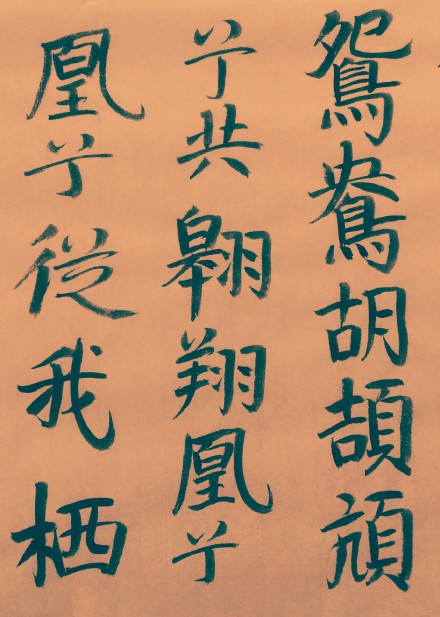 鴛鴦胡頡頏
兮共翱翔凰兮
凰兮從我栖